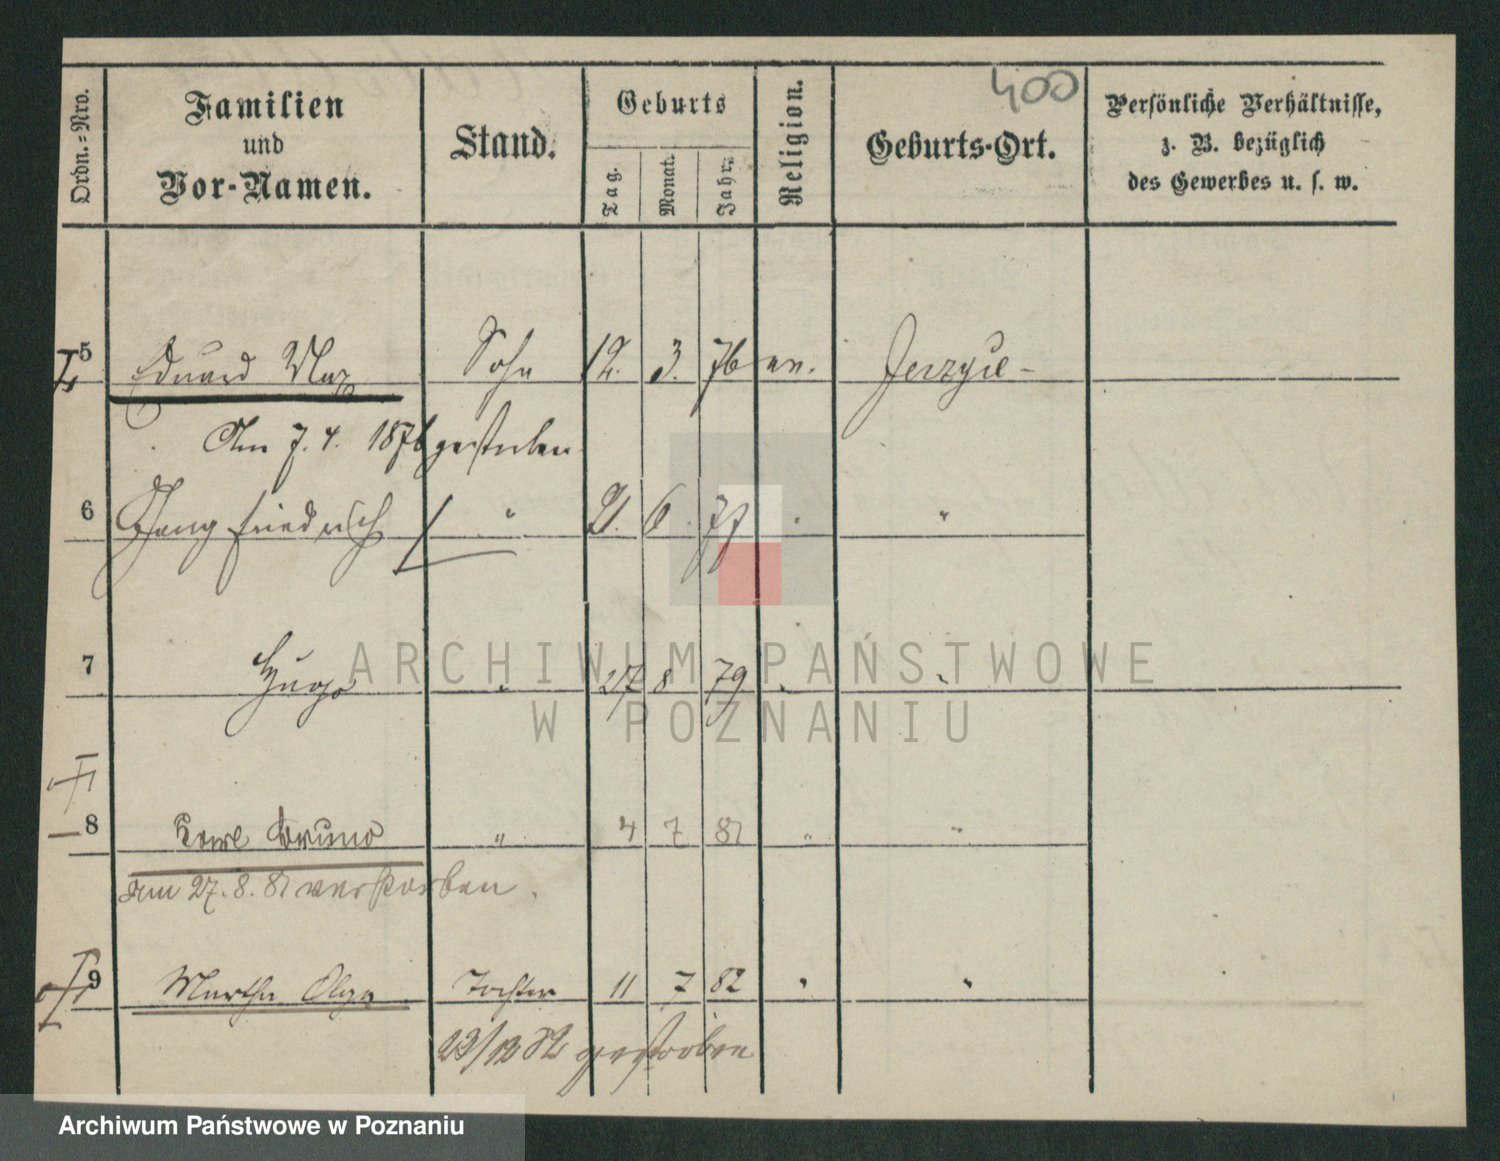 400
Ordn.=Nro.
Familien
und
Vor-Namen.
Stand.
Geburts
Tag.
Monat.
Jahr.
Religion.
Geburts-Ort.
Persönliche Verhältnisse,
z. B. bezüglich
des Gewerbes u. s. w.
5 Eduard Max Sohn 12. 3. 76 ev. Jerzyce
Am 7. 4. 1876 gestorben
6 Friedrich " 21. 6. 77 " "
7 Hugo " 27 8 79 " "
8 Karl Bruno " 4 7 81 " "
am 27. 8. 81 verstorben.
9 Martha Olga Tochter 11 7 82 " "
23/12 82 gestorben
ARCHIWUM PAŃSTWOWE
W POZNANIU
Archiwum Państwowe w Poznaniu